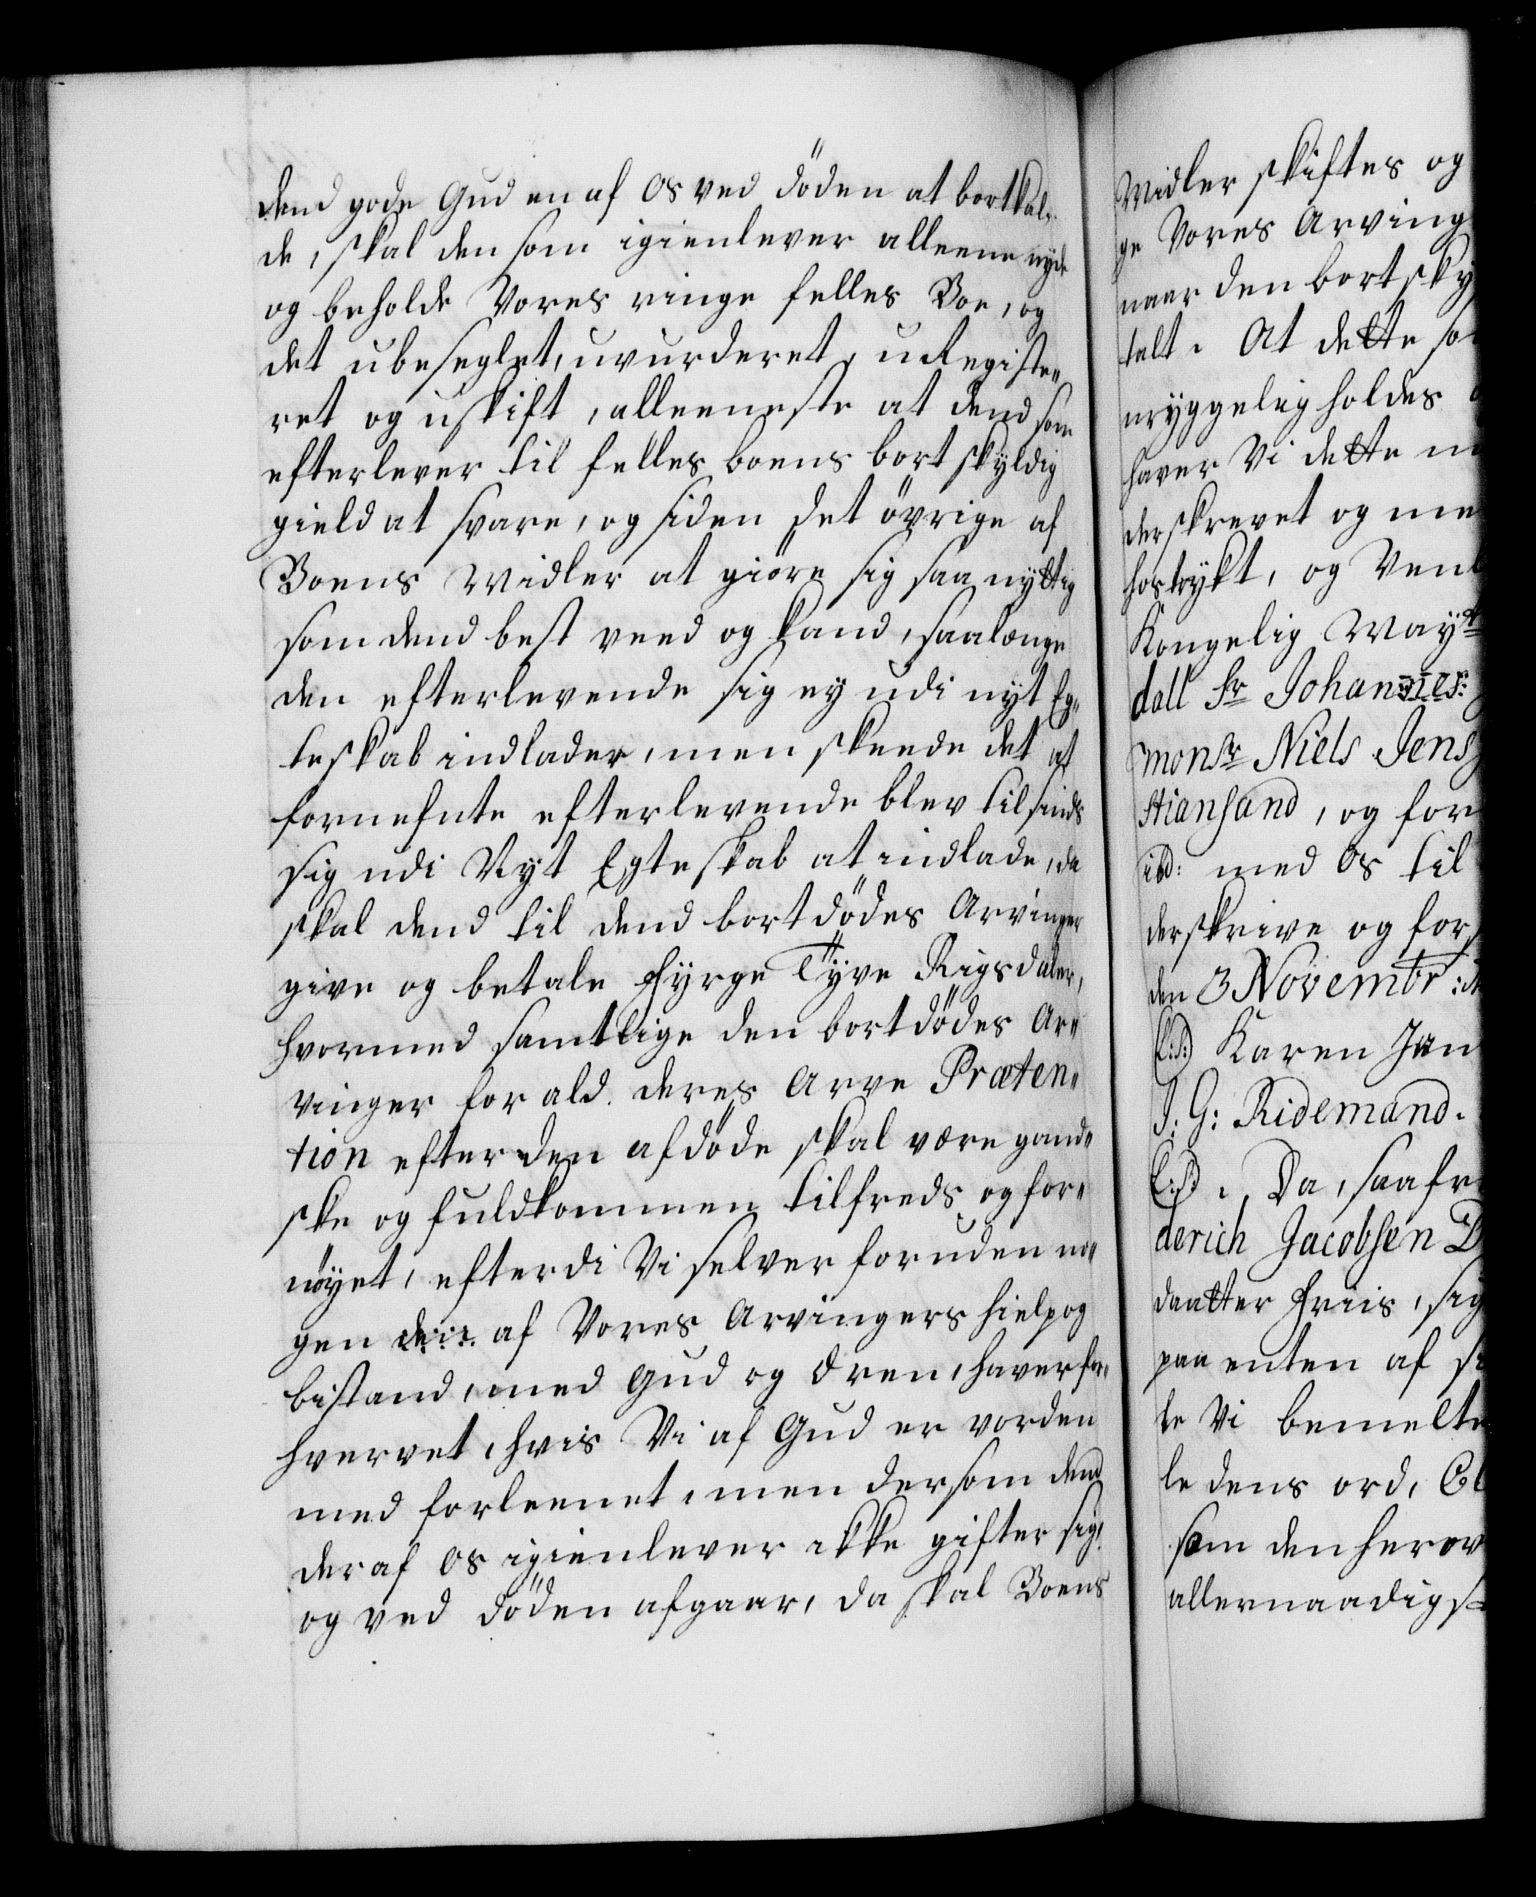 dend gode Gud en af Os ved döden at bortkal„
de, skal den som igienlever alleene nyde
og beholde Vores ringe felles Boe, og
det ubeseglet, uvurderet, uRegiste„
ret og uskift, alleeneste at dend som
efterlever til felles boens bort skyldig
gield at svare, og siden det övrige af
Boens Midler at giöre sig saa nyttig
som dend best veed og kand, saalænge
den efterlevende sig ey udi nyt Eg„
teskab indlader, men skeede det at
fornefnte efterlevende blev tilsinds
sig udi Nyt Egteskab at indlade, da
skal dend til dend bortdödes Arvinger
give og betale Fyrge Tyve Rigsdaler,
hvormed samtlige den bortdödes Ar„
vinger for ald deres Arve Præten„
tion efter den afdöde skal være gand„
ske og fuldkommen tilfreds og for„
nöyet, efterdi Vi selver foruden no„
gen af Vores Arvingers hielp og
bistand, med Gud og Æren, haver for„
hvervet, hvis Vi af Gud er vorden
med forleenet, men dersom dend
der af Os igienlever ikke gifter sig,
og ved döden afgaar, da skal Boens
Midler skiftes og
ge Vores Arving
naar den bort sky
talt. At dette so
ryggelig holdes
haver Vi dette
derskrevet og me
hostrykt, og Venl
Kongelig May:ts
dall Sr Johannes:
monsr Niels Jens
stiansand, og for
ibd: med Os til
derskrive og fors
den 3 Novembr:
(L:S:) Karen Jan
J: G: Ridemand.
(L:S:), Da, saafr
derich Jacobsen D
daatter Friis, sig
paa enten af si
de Vi bemelte
le dens ord,
som den herov
allernaadigst